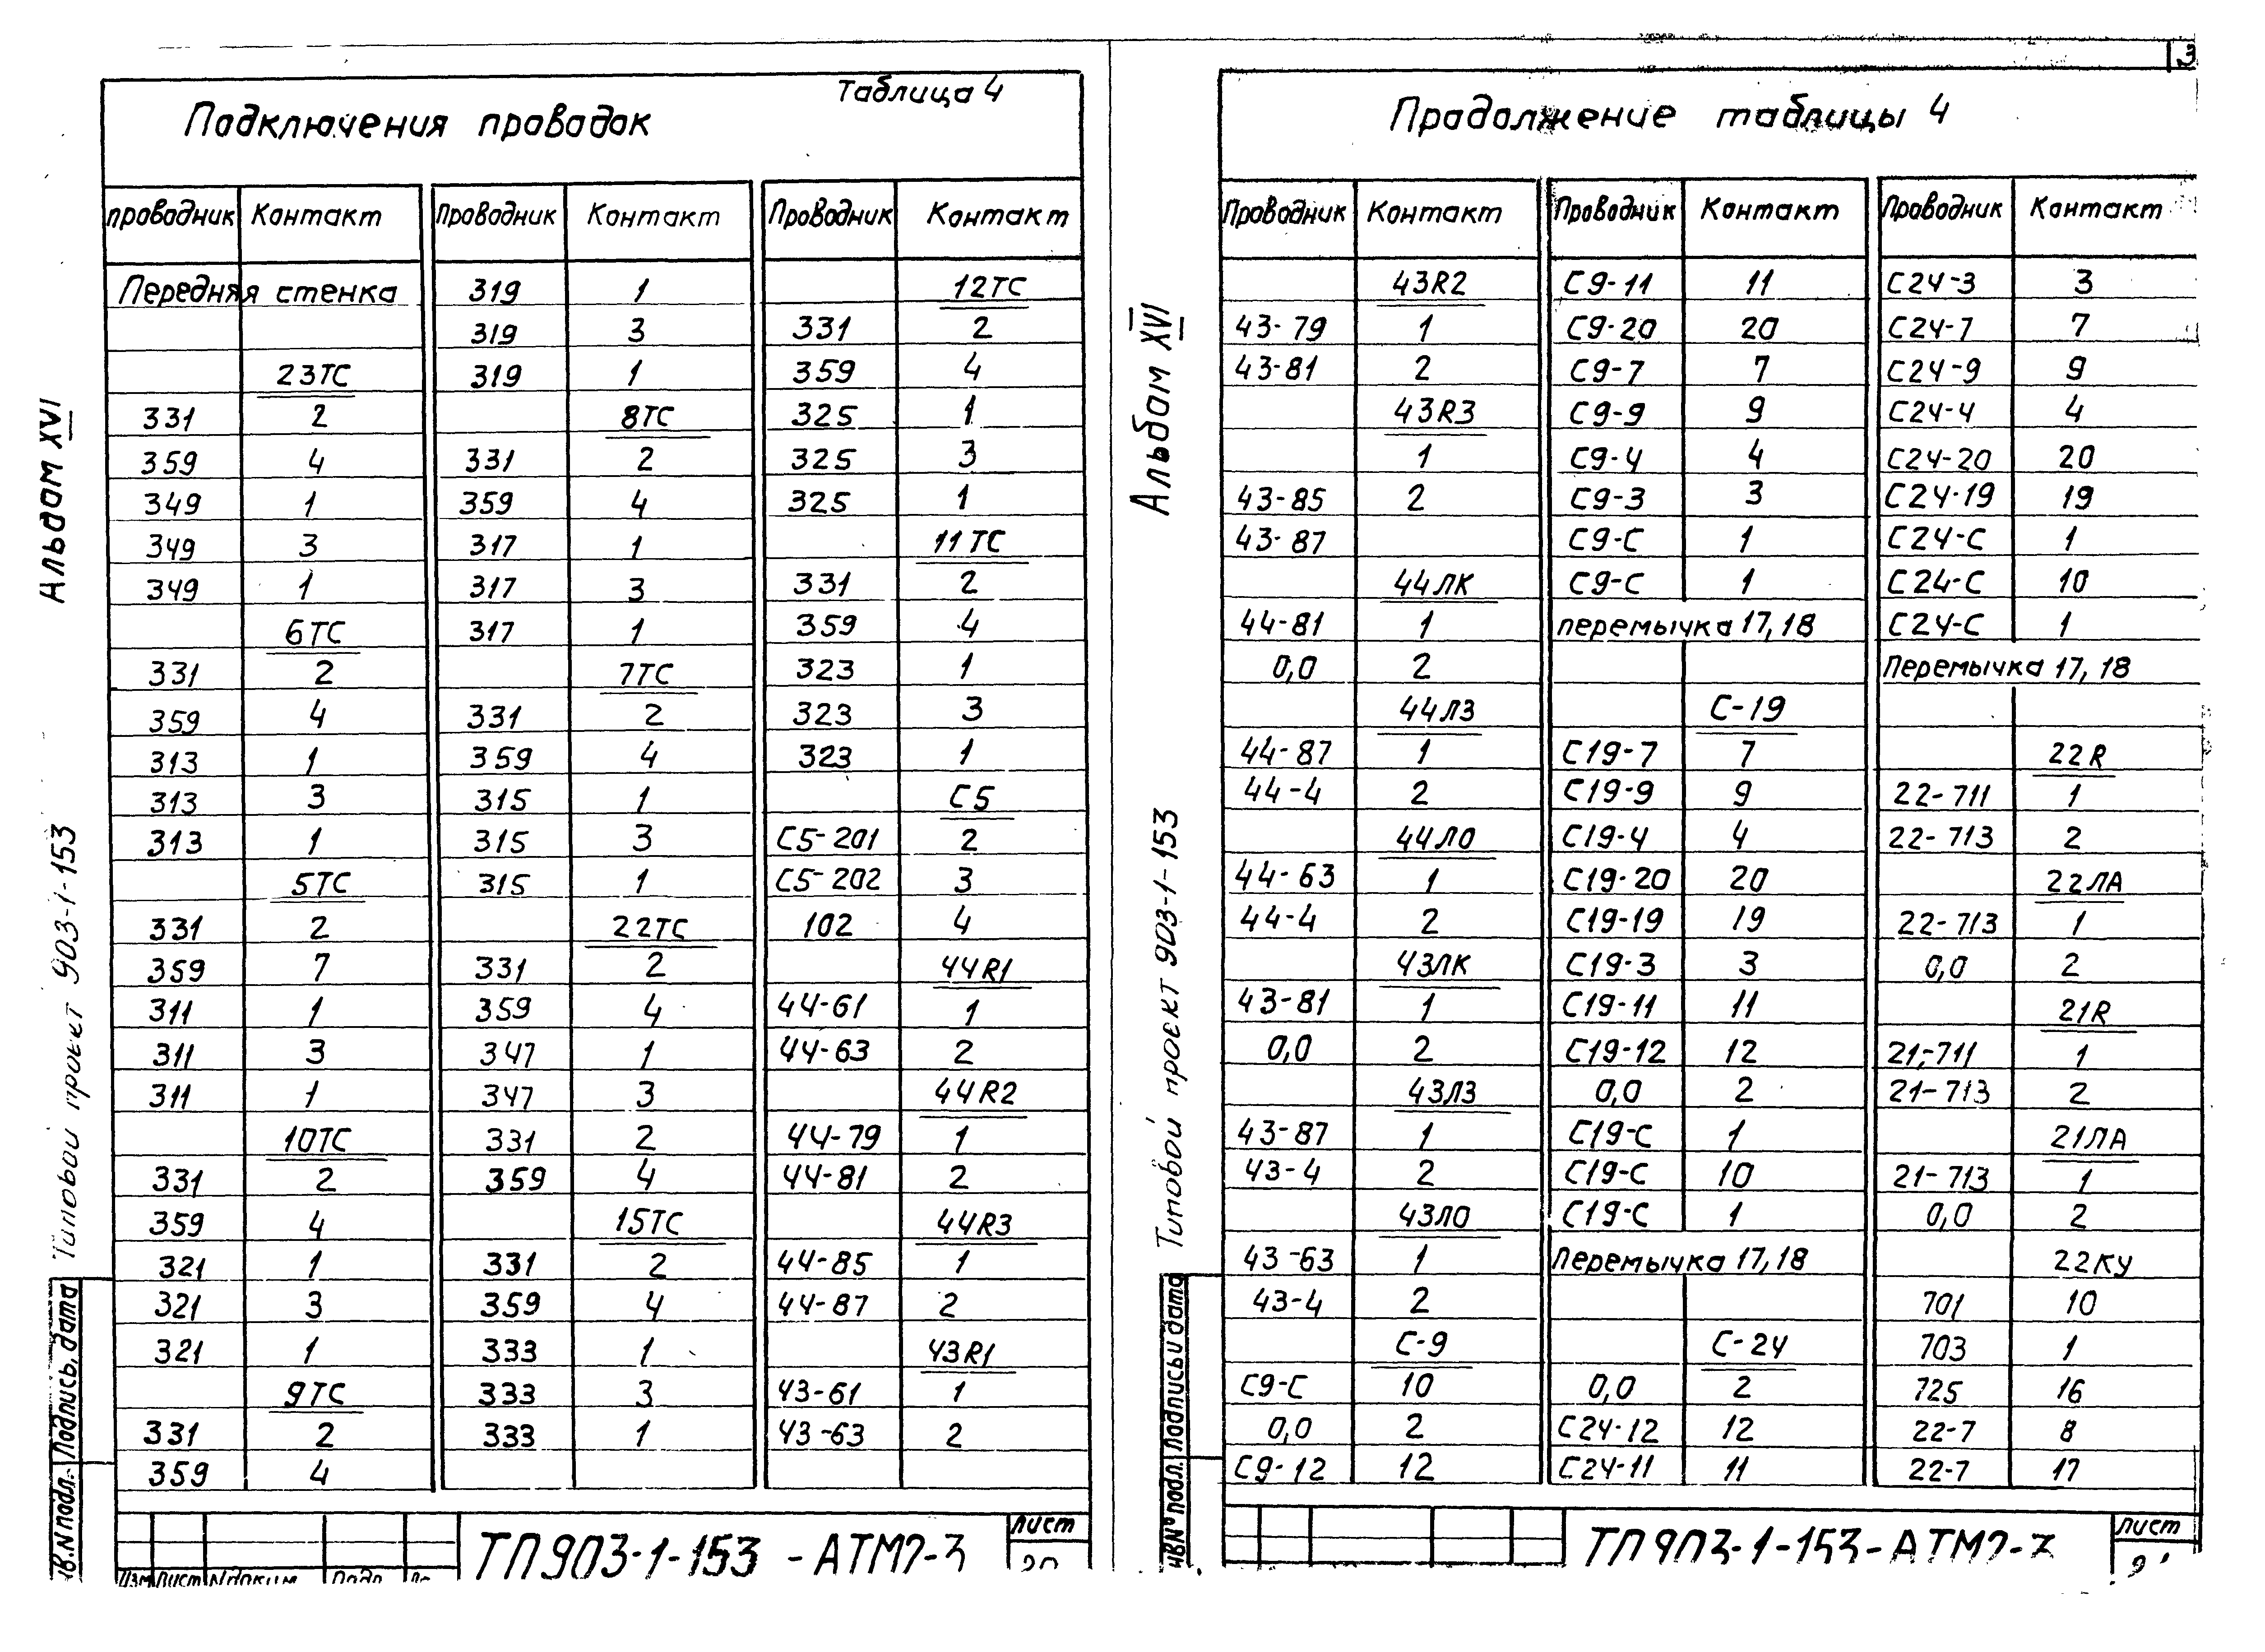 3
Таблица 4
Подключения проводок
проводник Контакт Проводник Контакт Проводник Контакт
Передняя стенка 319 1 12ТС
319 3 331 2
23ТС 319 1 359 4
331 2 8ТС 325 1
359 4 331 2 325 3
349 1 359 4 325 1
349 3 317 1 11ТС
349 1 317 3 331 2
6ТС 317 1 359 4
331 2 7ТС 323 1
359 4 331 2 323 3
313 1 359 4 323 1
313 3 315 1 С5
313 1 315 3 С5-201 2
5ТС 315 1 С5-202 3
331 2 22ТС 102 4
359 7 331 2 44R1
311 1 359 4 44-61 1
311 3 347 1 44-63 2
311 1 347 3 44R2
10ТС 331 2 44-79 1
331 2 359 4 44-81 2
359 4 15ТС 44R3
321 1 331 2 44-85 1
321 3 359 4 44-87 2
321 1 333 1 43R1
9ТС 333 3 43-61 1
331 2 333 1 43-63 2
359 4
Альбом XVI
Типовой проект 903-1-153
Подпись, дата
N подл.
лист
Продолжение таблицы 4
Проводник Контакт Проводник Контакт Проводник Контакт
43R2 С9-11 11 С24-3 3
43-79 1 С9-20 20 С24-7 7
43-81 2 С9-7 7 С24-9 9
43R3 С9-9 9 С24-4 4
1 С9-4 4 С24-20 20
43-85 2 С9-3 3 С24-19 19
43-87 С9-С 1 С24-С 1
44ЛК С9-С 1 С24-С 10
44-81 1 перемычка 17,18 С24-С 1
0,0 2 Перемычка 17,18
44ЛЗ С-19
44-87 1 С19-7 7 22R
44-4 2 С19-9 9 22-711 1
44ЛО С19-4 4 22-713 2
44-63 1 С19-20 20 22ЛА
44-4 2 С19-19 19 22-713 1
43ЛК С19-3 3 0,0 2
43-81 1 С19-11 11 21R
0,0 2 С19-12 12 21-711 1
43ЛЗ 0,0 2 21-713 2
43-87 1 С19-С 1 21ЛА
43-4 2 С19-С 10 21-713 1
43ЛО С19-С 1 0,0 2
43-63 1 Перемычка 17,18 22КУ
43-4 2 701 10
С-9 С-24 703 1
С9-С 10 0,0 2 725 16
0,0 2 С24-12 12 22-7 8
С9-12 12 С24-11 11 22-7 17
Альбом XVI
Типовой проект 903-1-153
Подпись и дата
N° подл.
лист